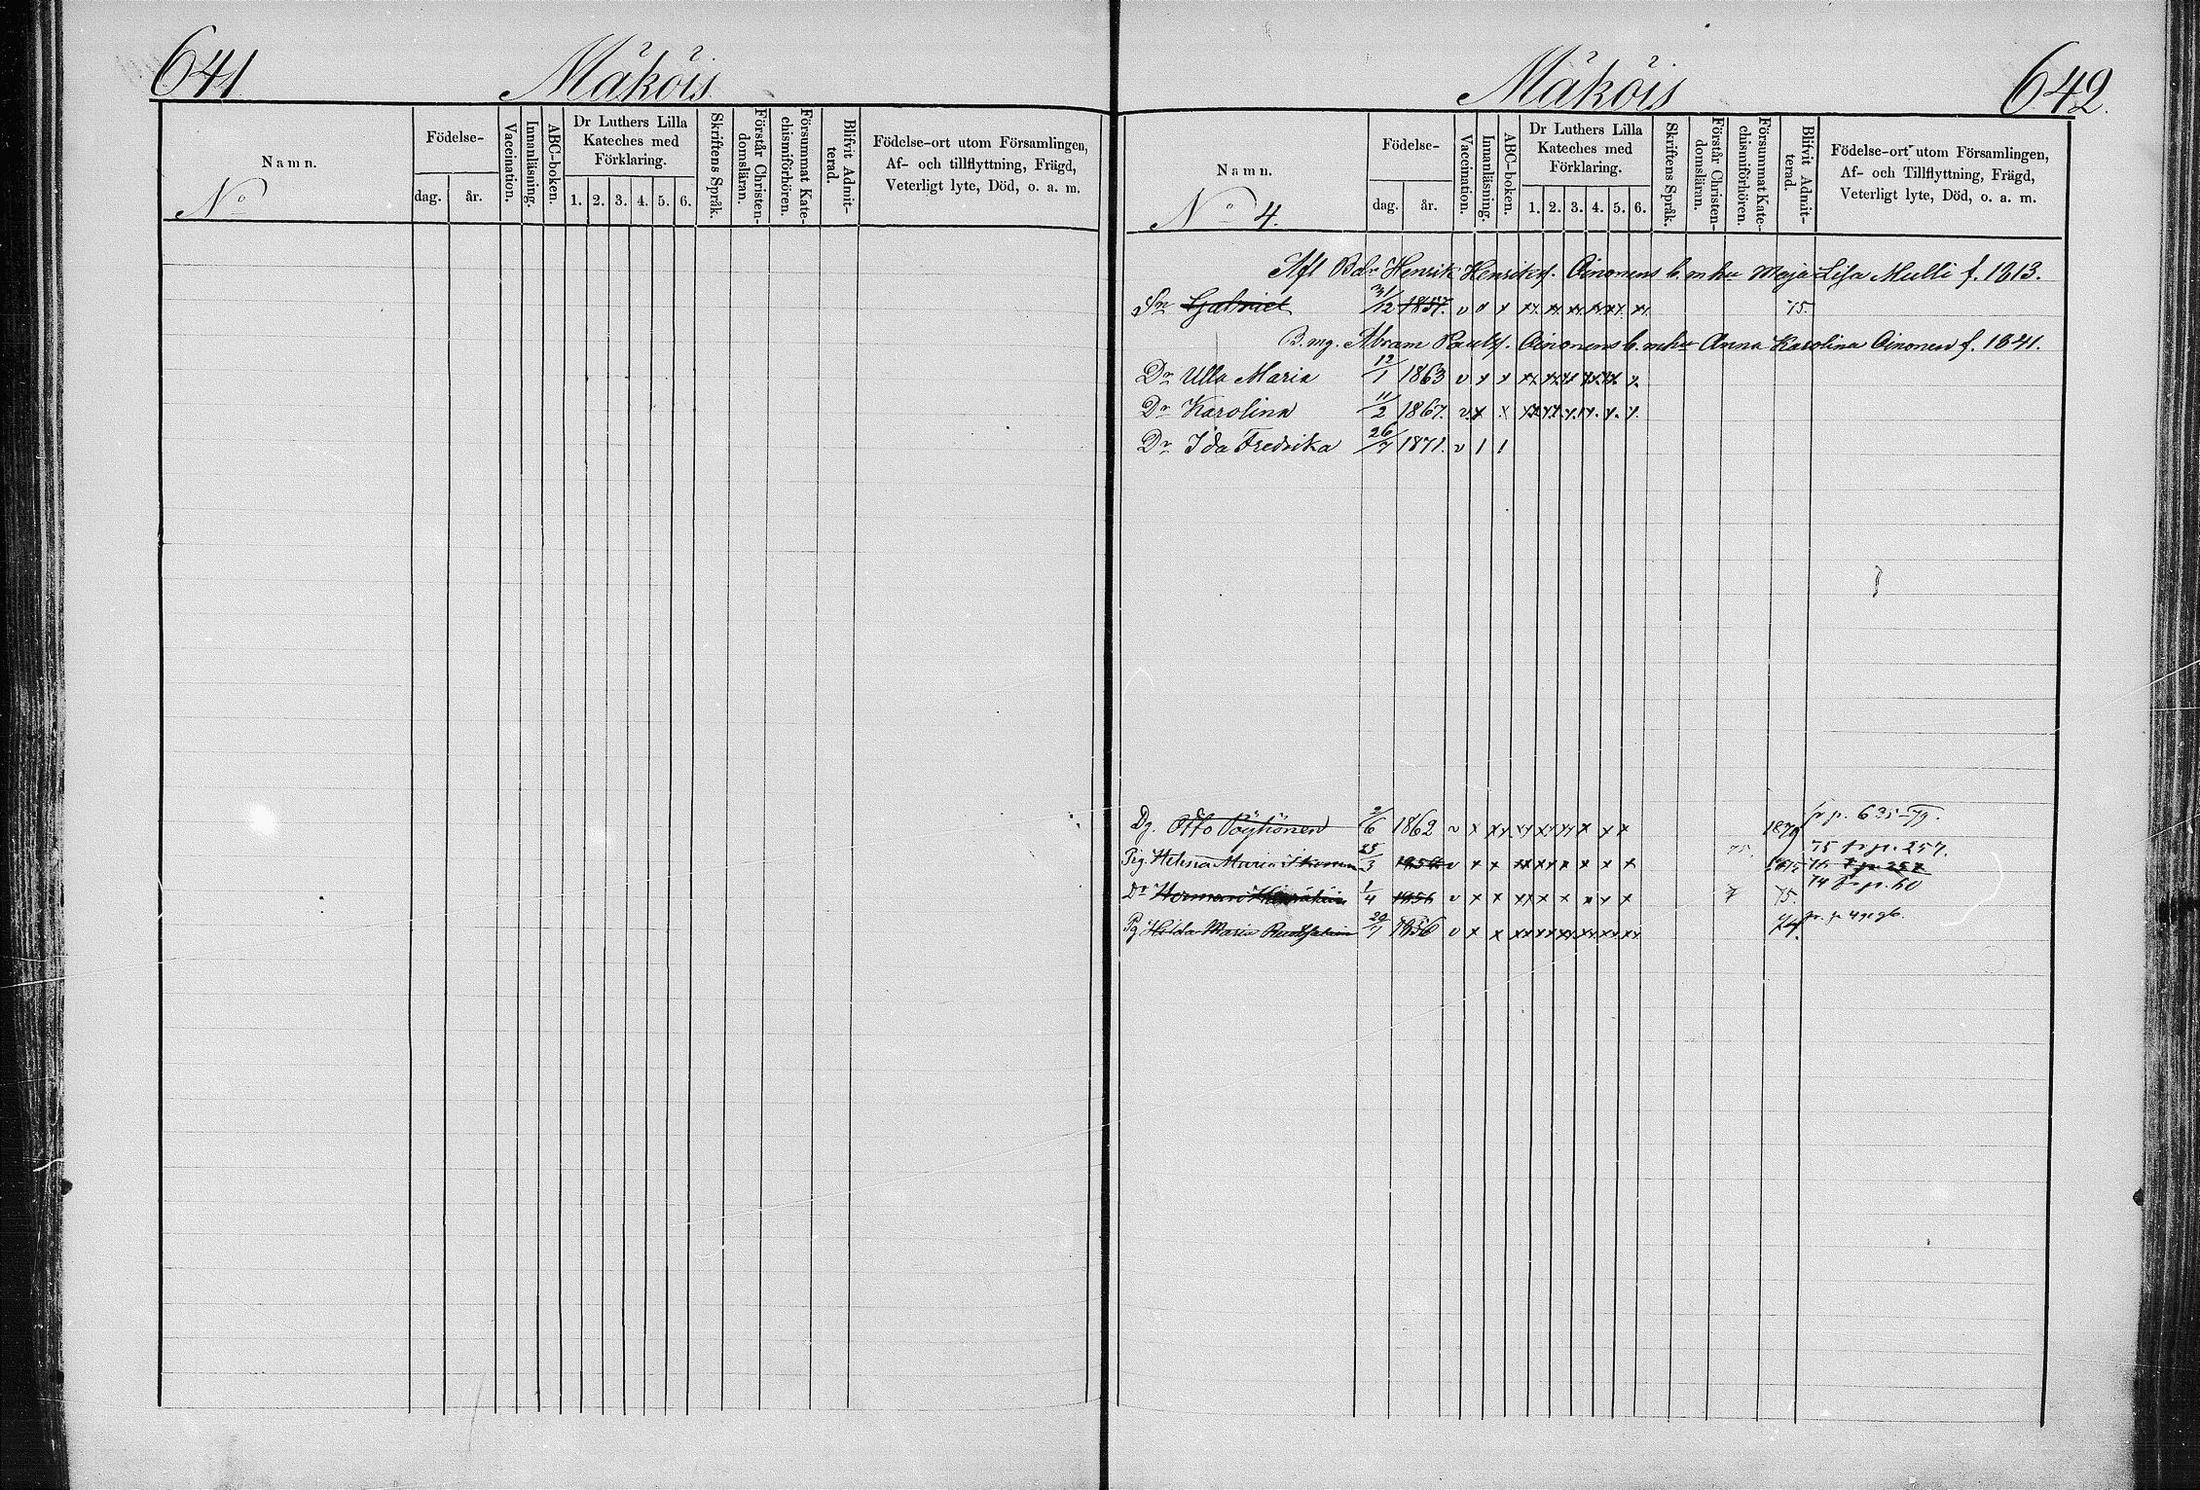 641
Mäköis
Namn.
No
Födelse-
dag.
år.
Vaccination.
Innanläsning.
ABC-boken.
Dr Luthers Lilla
Kateches med
Förklaring.
1. 2. 3. 4. 5. 6.
Skriftens Språk.
Förstår Christen-
domsläran.
Försummat Kate-
chismiförhören.
Blifvit Admit-
terad.
Födelse-ort utom Församlingen,
Af- och tillflyttning, Frägd,
Veterligt lyte, Död, o. a. m.
Mäköis
642.
Namn.
No 4.
Födelse-
dag.
år.
Vaccination.
Innanläsning.
ABC-boken.
Dr Luthers Lilla
Kateches med
Förklaring.
1. 2. 3. 4. 5. 6.
Skriftens Språk.
Förstår Christen-
domsläran.
Försummat Kate-
chismiförhören.
Blifvit Admit-
terad.
Födelse-ort utom Församlingen,
Af- och Tillflyttning, Frägd,
Veterligt lyte, Död, o. a. m.
Afl Bdr Henrik Henriks. Oinonens b. m hu Maja Lisa Mulli f. 1813.
Sn Gabriel 31/12 1857. v x x x x x x x x 75.
B. mg. Abram Pauls. Oinonens b. m hu Anna Karolina Oinonen f. 1841.
Dr Ulla Maria 12/1 1863 v x x x x x x x x
Dr Karolina 11/2 1867. v x x x x x x x x
Dr Ida Fredrika 26/7 1871. v 1 1
Dg. Otto Pöyhönen 2/6 1862 v x x x x x x x x 1879 fr p. 635
Pig. Helena Maria 28/3 v x x x x x x x x 75 fr p. 257.
Dr Herman 1/4 1856 v x x x x x x x x 75. 74 fr p. 60
Pg Hilda Maria 29/7 1856 v x x x x x x x x